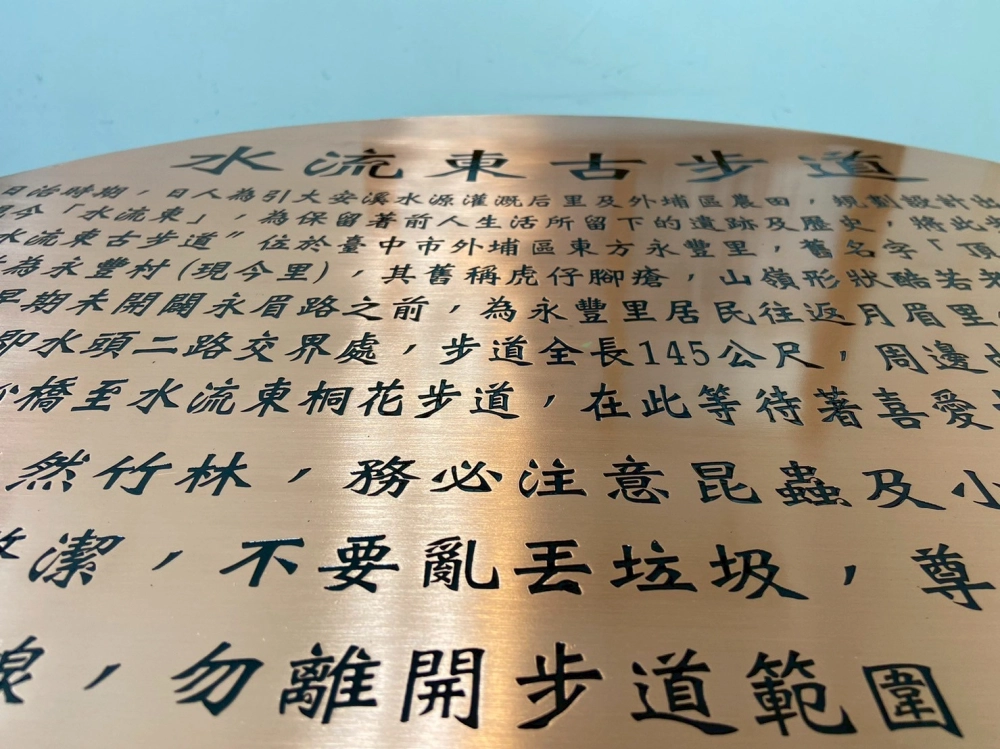 水流東古步道
日治時期，日人為引大安溪水源灌溉后里及外埔區農田，規劃設計出
今「水流東」，為保留著前人生活所留下的遺跡及歷史，將此
水流東古步道"位於臺中市外埔區東方永豐里，舊名字「頂
為永豐村(現今里)，其舊稱虎仔腳瘡，山嶺形狀酷若
早期未開闢永眉路之前，為永豐里居民往返月眉里
即水頭二路交界處，步道全長145公尺，周邊
橋至水流東桐花步道，在此等待著喜愛
然竹林，務必注意昆蟲及小
潔，不要亂丟垃圾，尊
，勿離開步道範圍